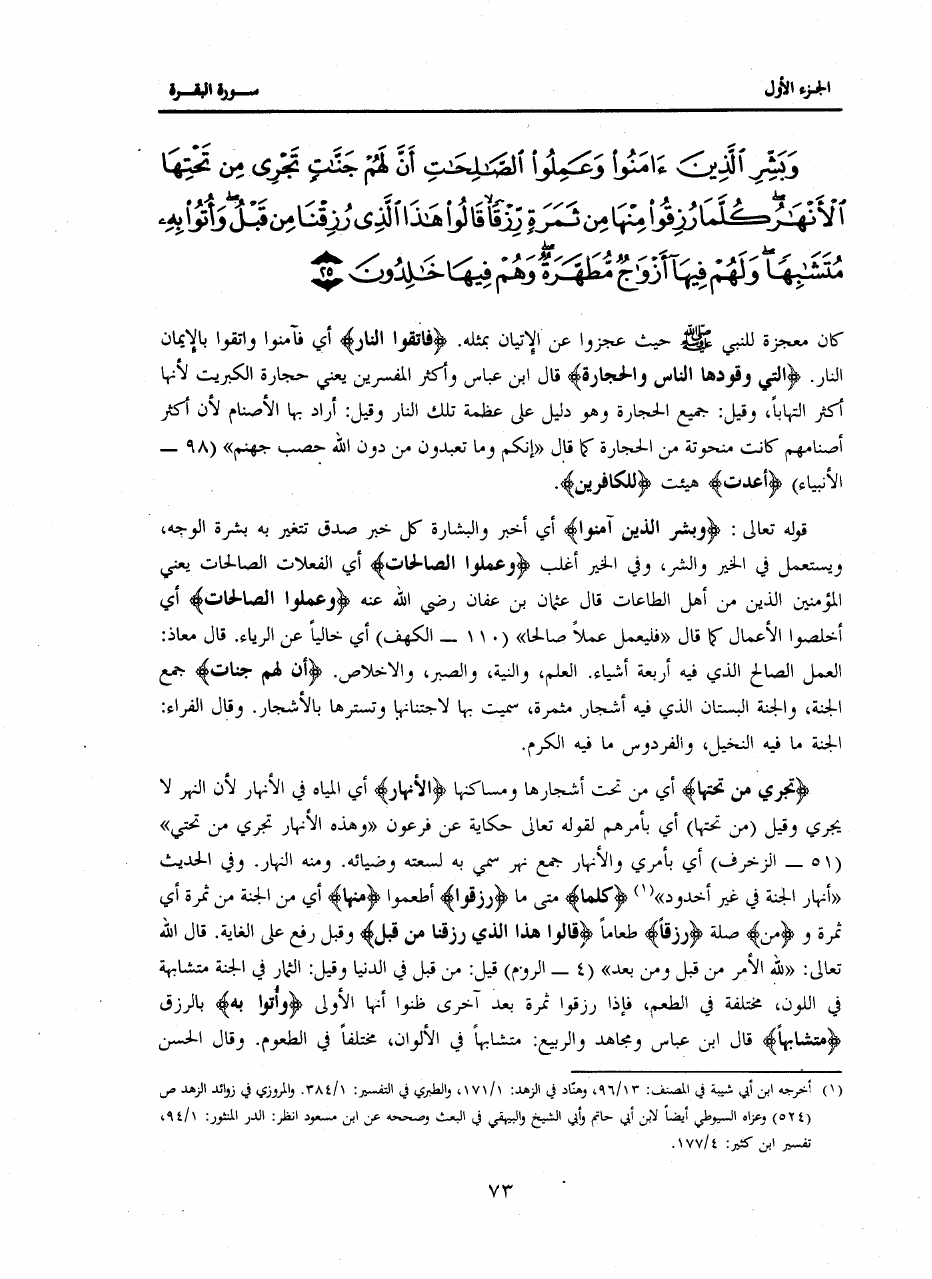 الجزء الأول
ســورة البقــرة
وَبَشِّرِ ٱلَّذِينَ ءَامَنُوا۟ وَعَمِلُوا۟ ٱلصَّٰلِحَٰتِ أَنَّ لَهُمْ جَنَّٰتٍ تَجْرِى مِن تَحْتِهَا
ٱلْأَنْهَٰرُ ۖ كُلَّمَا رُزِقُوا۟ مِنْهَا مِن ثَمَرَةٍ رِّزْقًا ۙ قَالُوا۟ هَٰذَا ٱلَّذِى رُزِقْنَا مِن قَبْلُ ۖ وَأُتُوا۟ بِهِۦ
مُتَشَٰبِهًا ۖ وَلَهُمْ فِيهَآ أَزْوَٰجٌ مُّطَهَّرَةٌ ۖ وَهُمْ فِيهَا خَٰلِدُونَ ٢٥
كان معجزة للنبي ﷺ حيث عجزوا عن الإتيان بمثله. ﴿فاتقوا النار﴾ أي فآمنوا واتقوا بالإيمان
النار. ﴿التي وقودها الناس والحجارة﴾ قال ابن عباس وأكثر المفسرين يعني حجارة الكبريت لأنها
أكثر التهاباً، وقيل: جميع الحجارة وهو دليل على عظمة تلك النار وقيل: أراد بها الأصنام لأن أكثر
أصنامهم كانت منحوتة من الحجارة كما قال «إنكم وما تعبدون من دون الله حصب جهنم» (٩٨ ــ
الأنبياء) ﴿أعدت﴾ هيئت ﴿للكافرين﴾.
قوله تعالى: ﴿وبشر الذين آمنوا﴾ أي أخبر والبشارة كل خبر صدق تتغير به بشرة الوجه،
ويستعمل في الخير والشر، وفي الخير أغلب ﴿وعملوا الصالحات﴾ أي الفعلات الصالحات يعني
المؤمنين الذين من أهل الطاعات قال عثمان بن عفان رضي الله عنه ﴿وعملوا الصالحات﴾ أي
أخلصوا الأعمال كما قال «فليعمل عملاً صالحا» (١١٠ ــ الكهف) أي خالياً عن الرياء. قال معاذ:
العمل الصالح الذي فيه أربعة أشياء. العلم، والنية، والصبر، والاخلاص. ﴿أن لهم جنات﴾ جمع
الجنة، والجنة البستان الذي فيه أشجار مثمرة، سميت بها لاجتنانها وتسترها بالأشجار. وقال الفراء:
الجنة ما فيه النخيل، والفردوس ما فيه الكرم.
﴿تجري من تحتها﴾ أي من تحت أشجارها ومساكنها ﴿الأنهار﴾ أي المياه في الأنهار لأن النهر لا
يجري وقيل (من تحتها) أي بأمرهم لقوله تعالى حكاية عن فرعون «وهذه الأنهار تجري من تحتي»
(٥١ ــ الزخرف) أي بأمري والأنهار جمع نهر سمي به لسعته وضيائه. ومنه النهار. وفي الحديث
«أنهار الجنة في غير أخدود»(١) ﴿كلما﴾ متى ما ﴿رزقوا﴾ أطعموا ﴿منها﴾ أي من الجنة من ثمرة أي
ثمرة و ﴿من﴾ صلة ﴿رزقاً﴾ طعاماً ﴿قالوا هذا الذي رزقنا من قبل﴾ وقبل رفع على الغاية. قال الله
تعالى: «لله الأمر من قبل ومن بعد» (٤ ــ الروم) قيل: من قبل في الدنيا وقيل: الثمار في الجنة متشابهة
في اللون، مختلفة في الطعم، فإذا رزقوا ثمرة بعد أخرى ظنوا أنها الأولى ﴿وأُتوا به﴾ بالرزق
﴿متشابهاً﴾ قال ابن عباس ومجاهد والربيع: متشابهاً في الألوان، مختلفاً في الطعوم. وقال الحسن
(١) أخرجه ابن أبي شيبة في المصنف: ٩٦/١٣، وهنّاد في الزهد: ١٧١/١، والطبري في التفسير: ٣٨٤/١. والمروزي في زوائد الزهد ص
(٥٢٤) وعزاه السيوطي أيضاً لابن أبي حاتم وأبي الشيخ والبيهقي في البعث وصححه عن ابن مسعود انظر: الدر المنثور: ٩٤/١،
تفسير ابن كثير: ١٧٧/٤.
٧٣